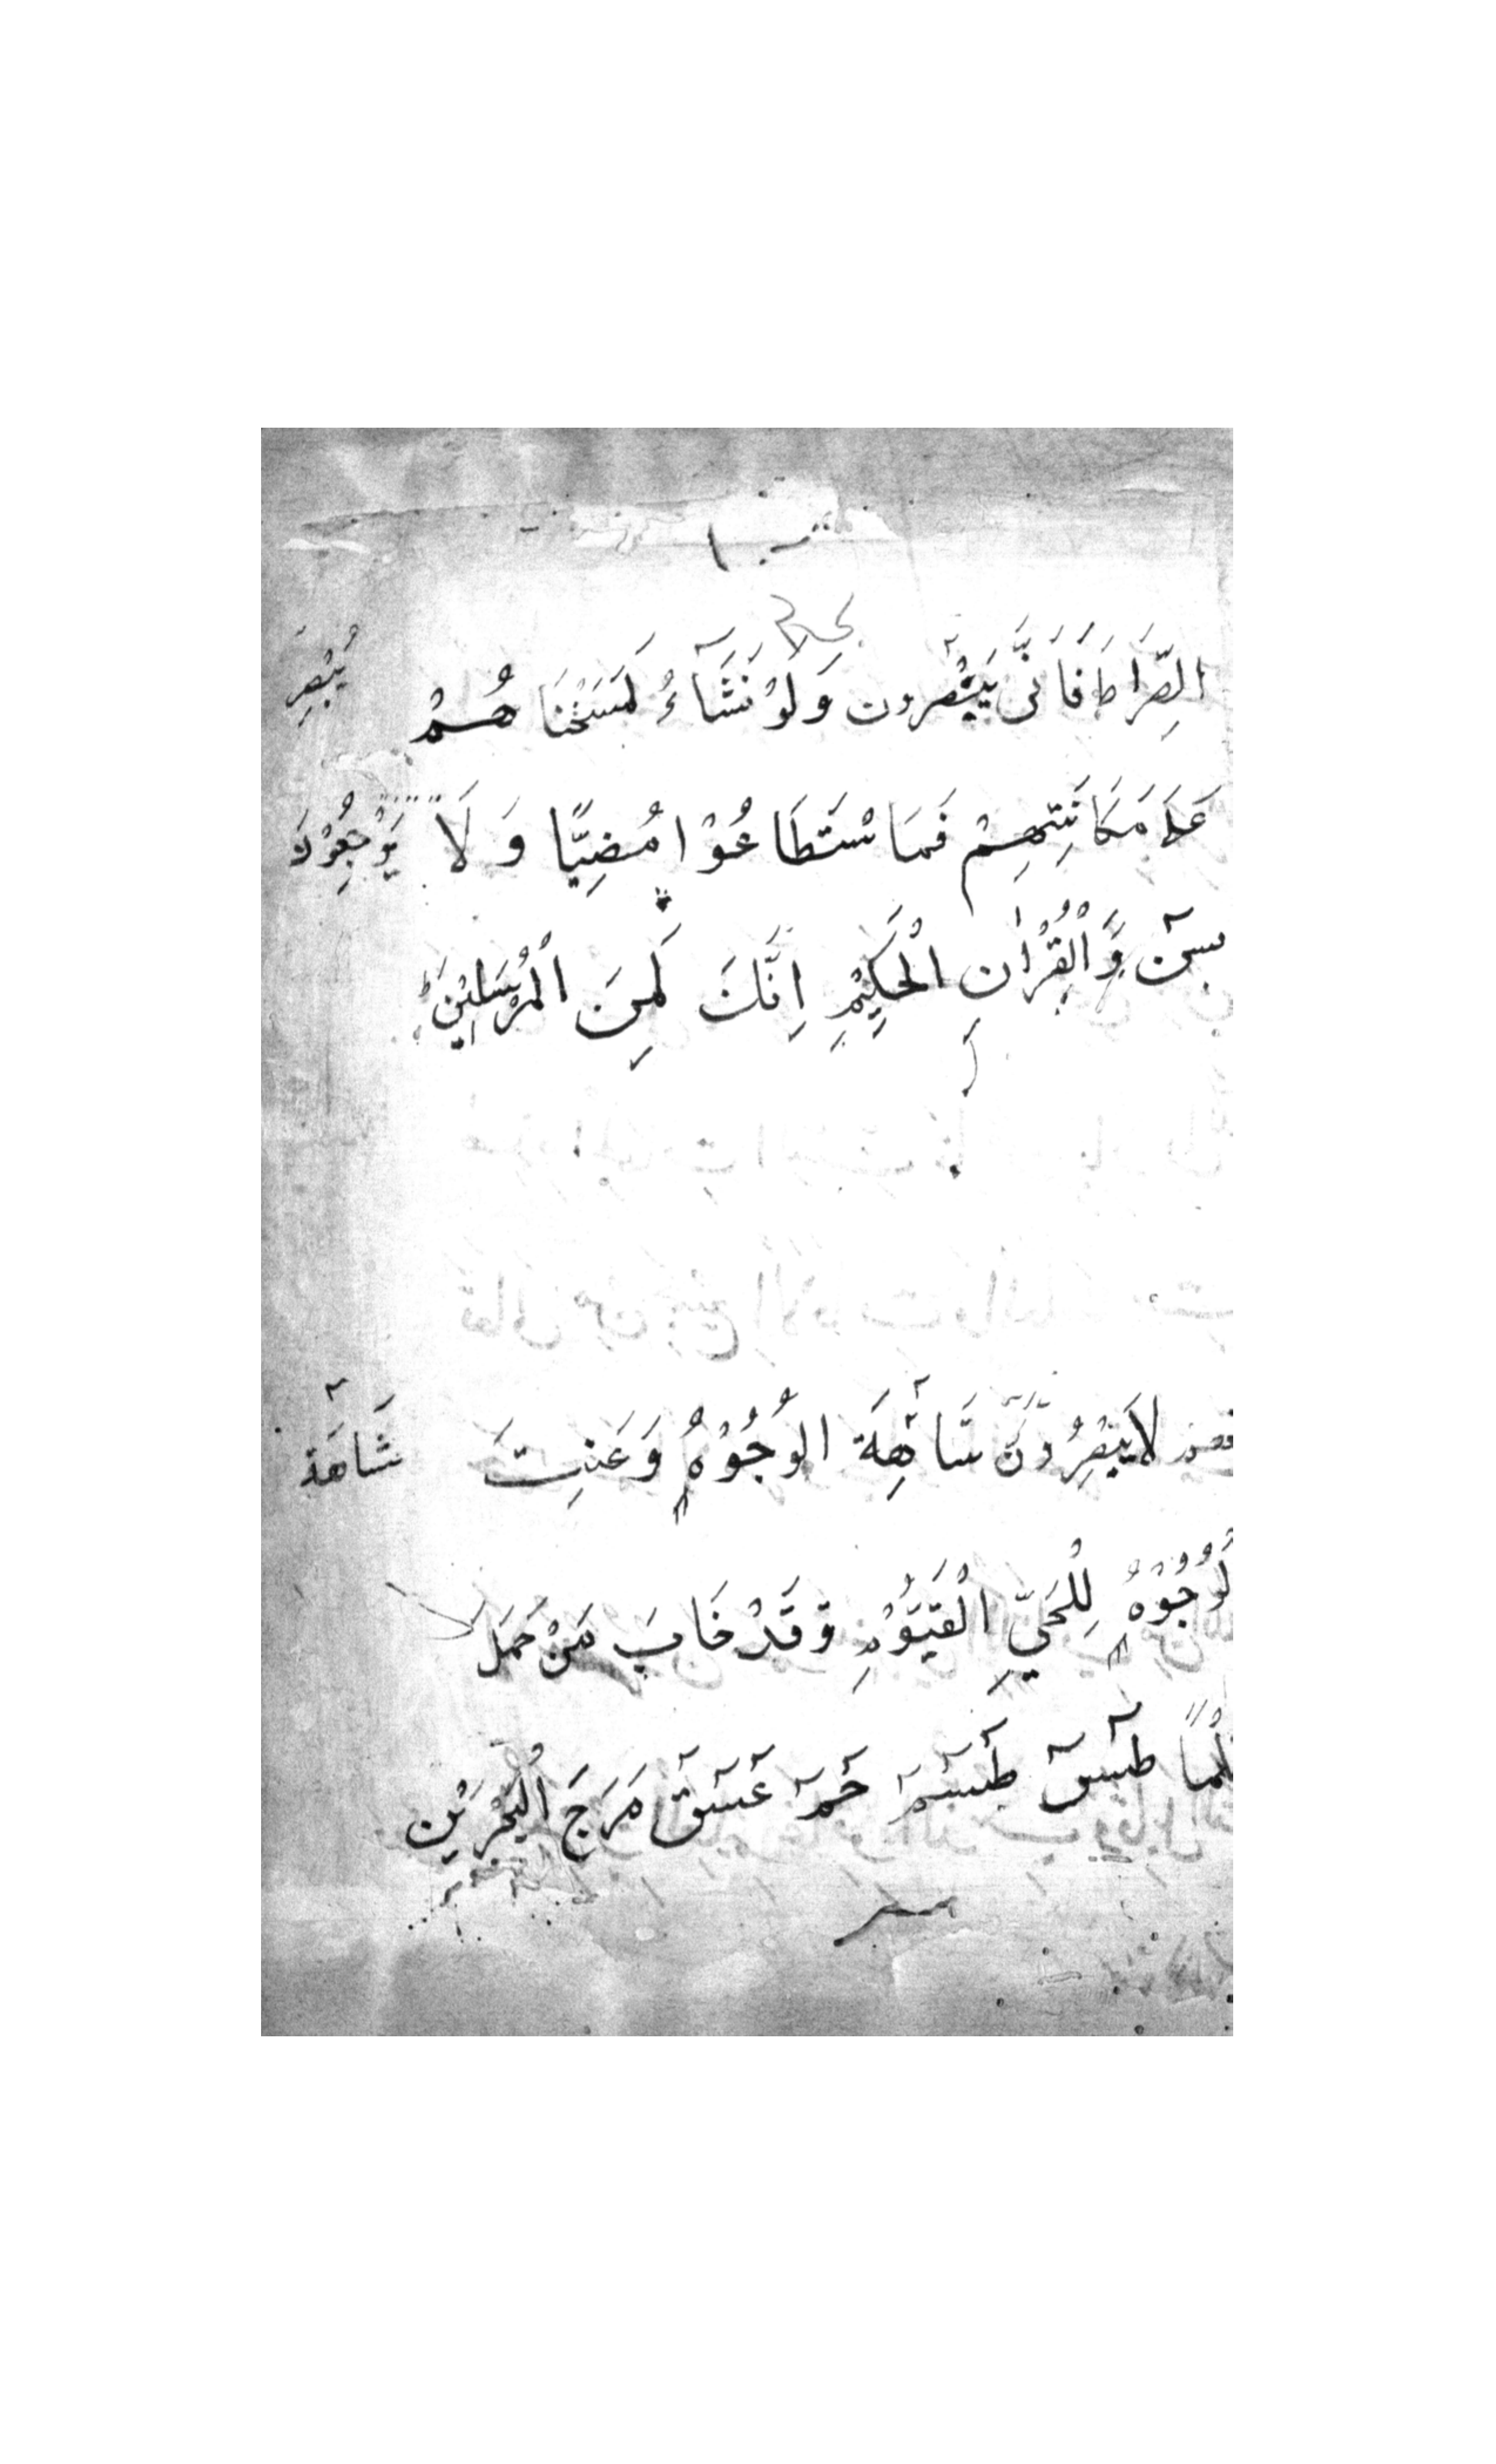 الصِّرَاطَ فَاَنّٰى يُبْصِرُون وَلَوْ نَشَآءُ لَمَسَخْنَا هُمْ
يُبْصِر
عَلٰى مَكَانَتِهِمْ فَمَاسْتَطَاعُوْا مُضِيًّا وَ لَا يَرْجِعُوْنَ
يٰسٓ وَالْقُرْاٰنِ الْحَكِيْمِ اِنَّكَ لَمِنَ الْمُرْسَلِيْنَ
لَا يُبْصِرُوْنَ شَاهَةِ الْوُجُوْهُ وَعَنِتَ
شَاهَة
لْوُجُوْهُ لِلْحَيِّ الْقَيُّوْمِ وَ قَدْ خَابَ مَنْ حَمَلَ
ظُلْمًا طٰسٓ طٰسٓمٓ حٰمٓ عٓسٓقٓ مَرَجَ الْبَحْرَيْنِ